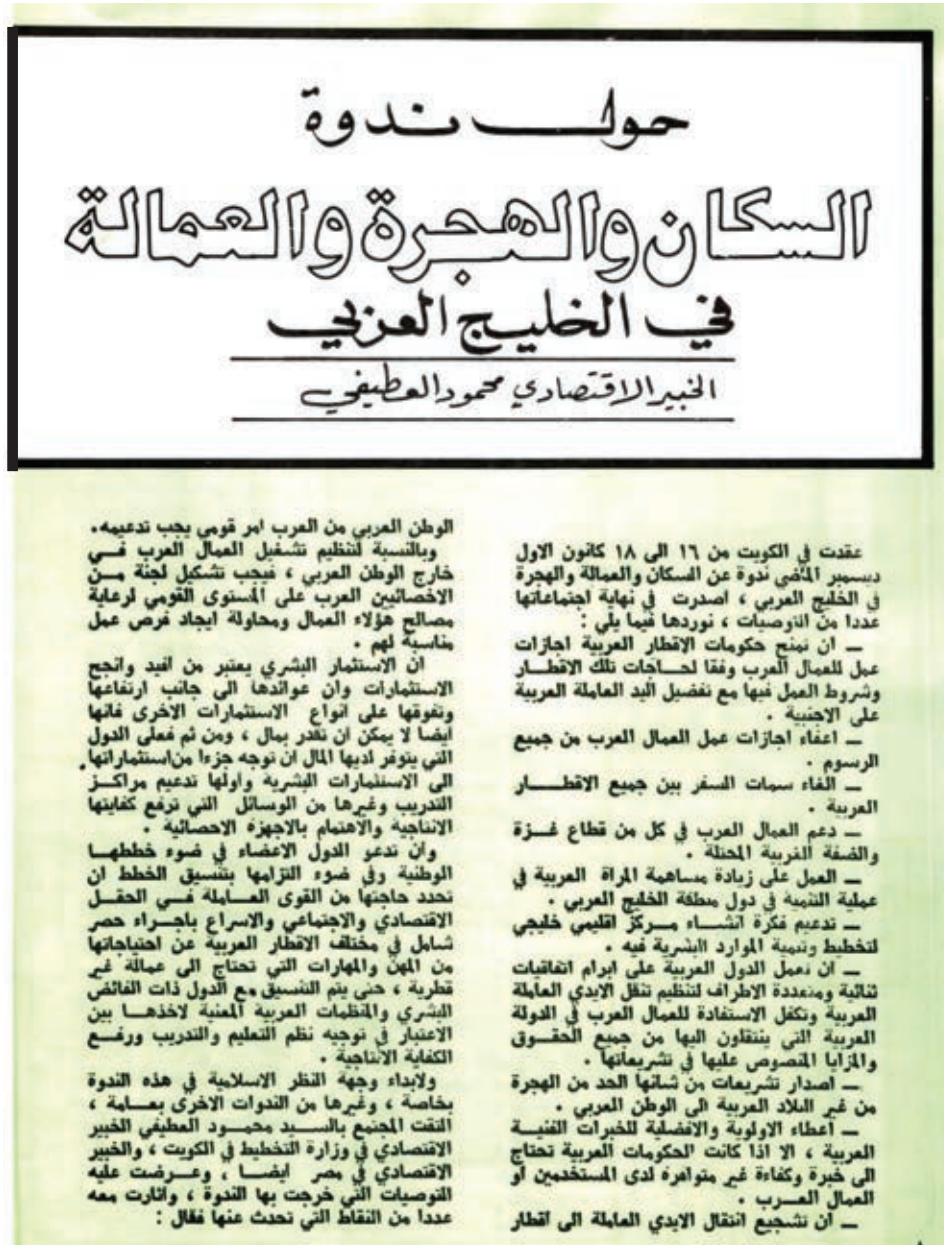 حول ندوة
السكان والهجرة والعمالة
في الخليج العربي
الخبير الاقتصادي محمود العطيفي
عقدت في الكويت من ١٦ الى ١٨ كانون الاول
ديسمبر الماضي ندوة عن السكان والعمالة والهجرة
في الخليج العربي ، اصدرت في نهاية اجتماعاتها
عددا من التوصيات ، نوردها فيما يلي :
ــ ان تمنح حكومات الاقطار العربية اجازات
عمل للعمال العرب وفقا لحــاجات تلك الاقطــار
وشروط العمل فيها مع تفضيل اليد العاملة العربية
على الاجنبية .
ــ اعفاء اجازات عمل العمال العرب من جميع
الرسوم .
ــ الغاء سمات السفر بين جميع الاقطــــار
العربية .
ــ دعم العمال العرب في كل من قطاع غــزة
والضفة الغربية المحتلة .
ــ العمل على زيادة مساهمة المراة العربية في
عملية التنمية في دول منطقة الخليج العربي .
ــ تدعيم فكرة انشــاء مــركز اقليمي خليجي
لتخطيط وتنمية الموارد البشرية فيه .
ــ ان تعمل الدول العربية على ابرام اتفاقيات
ثنائية ومتعددة الاطراف لتنظيم تنقل الايدي العاملة
العربية وتكفل الاستفادة للعمال العرب في الدولة
العربية التي ينتقلون اليها من جميع الحقــوق
والمزايا المنصوص عليها في تشريعاتها .
ــ اصدار تشريعات من شانها الحد من الهجرة
من غير البلاد العربية الى الوطن العربي .
ــ اعطاء الاولوية والافضلية للخبرات الفنيــة
العربية ، الا اذا كانت الحكومات العربية تحتاج
الى خبرة وكفاءة غير متوافرة لدى المستخدمين او
العمال العــرب .
ــ ان تشجيع انتقال الايدي العاملة الى اقطار
الوطن العربي من العرب امر قومي يجب تدعيمه.
وبالنسبة لتنظيم تشغيل العمال العرب فــي
خارج الوطن العربي ، فيجب تشكيل لجنة مــن
الاخصائيين العرب على المستوى القومي لرعاية
مصالح هؤلاء العمال ومحاولة ايجاد فرص عمل
مناسبة لهم .
ان الاستثمار البشري يعتبر من افيد وانجح
الاستثمارات وان عوائدها الى جانب ارتفاعها
وتفوقها على انواع الاستثمارات الاخرى فانها
ايضا لا يمكن ان تقدر بمال ، ومن ثم فعلى الدول
التي يتوفر لديها المال ان توجه جزءا من استثماراتها
الى الاستثمارات البشرية واولها تدعيم مراكــز
التدريب وغيرها من الوسائل التي ترفع كفايتها
الانتاجية والاهتمام بالاجهزة الاحصائية .
وان تدعو الدول الاعضاء في ضوء خططهــا
الوطنية وفي ضوء التزامها بتنسيق الخطط ان
تحدد حاجتها من القوى العــاملة فــي الحقــل
الاقتصادي والاجتماعي والاسراع باجــراء حصر
شامل في مختلف الاقطار العربية عن احتياجاتها
من المهن والمهارات التي تحتاج الى عمالة غير
قطرية ، حتى يتم التنسيق مع الدول ذات الفائض
البشري والمنظمات العربية المعنية لاخذها بين
الاعتبار في توجيه نظم التعليم والتدريب ورفــع
الكفاية الانتاجية .
ولابداء وجهة النظر الاسلامية في هذه الندوة
بخاصة ، وغيرها من الندوات الاخرى بعــامة ،
التقت المجتمع بالســيد محمــود العطيفي الخبير
الاقتصادي في وزارة التخطيط في الكويت ، والخبير
الاقتصادي في مصر ايضــا ، وعــرضت عليه
التوصيات التي خرجت بها الندوة ، واثارت معه
عددا من النقاط التي تحدث عنها فقال :